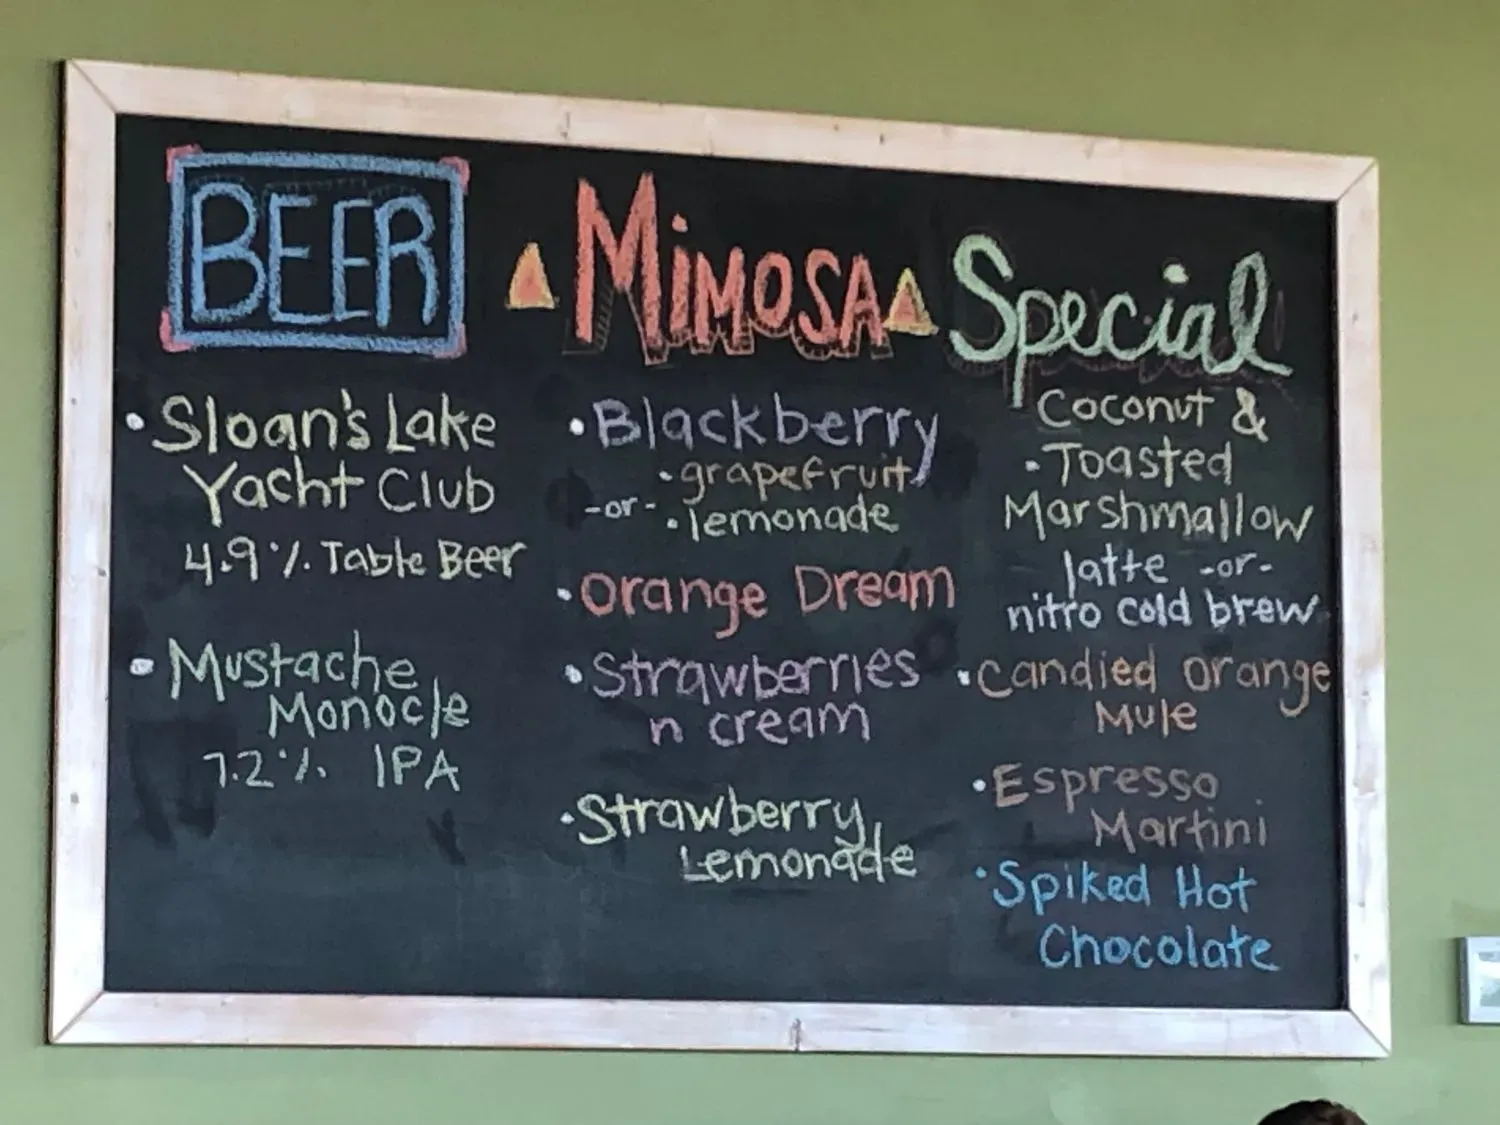 BEER
• Sloan's Lake
Yacht Club
4.9% Table Beer
• Mustache
Monocle
7.2% IPA
Mimosa
• Blackberry
• grapefruit
-or-
• lemonade
• Orange Dream
• Strawberries
n cream
• Strawberry
Lemonade
Special
Coconut &
• Toasted
Marshmallow
latte -or-
nitro cold brew
• Candied Orange
Mule
• Espresso
Martini
• Spiked Hot
Chocolate